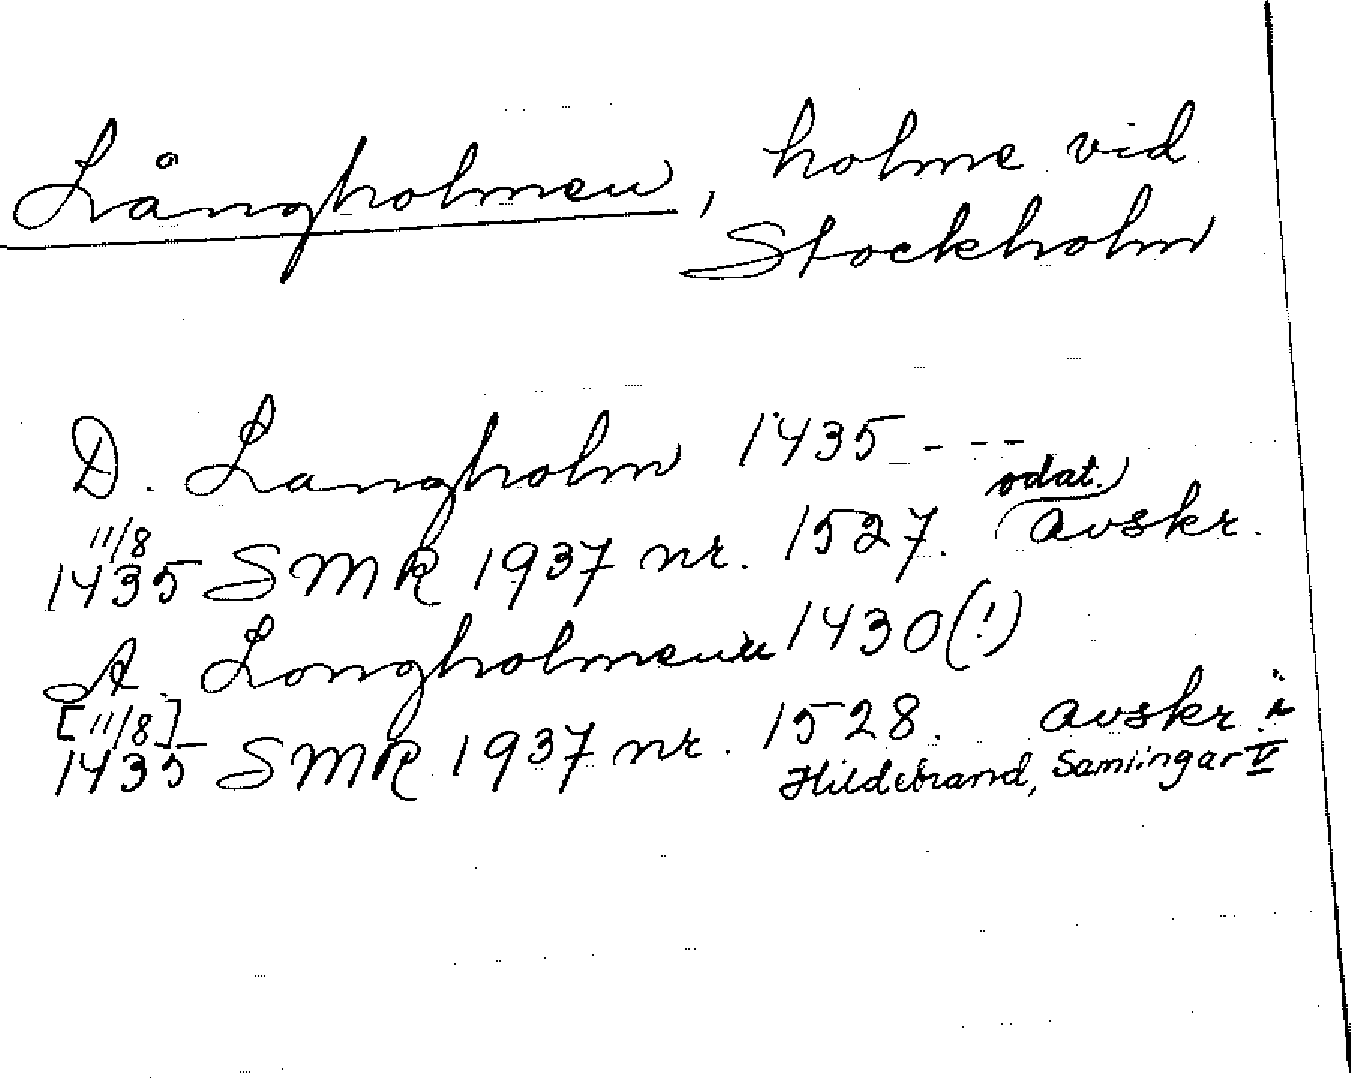 Långholmen, holme vid
Stockholm
D. Langholm 1435 - - -
odat.
11/8
1435 SMR 1937 nr. 1527. avskr.
A. Longholmenn 1430(!)
[11/8]
1435 SMR 1937 nr. 1528. avskr. i
Hildebrand, Samlingar V